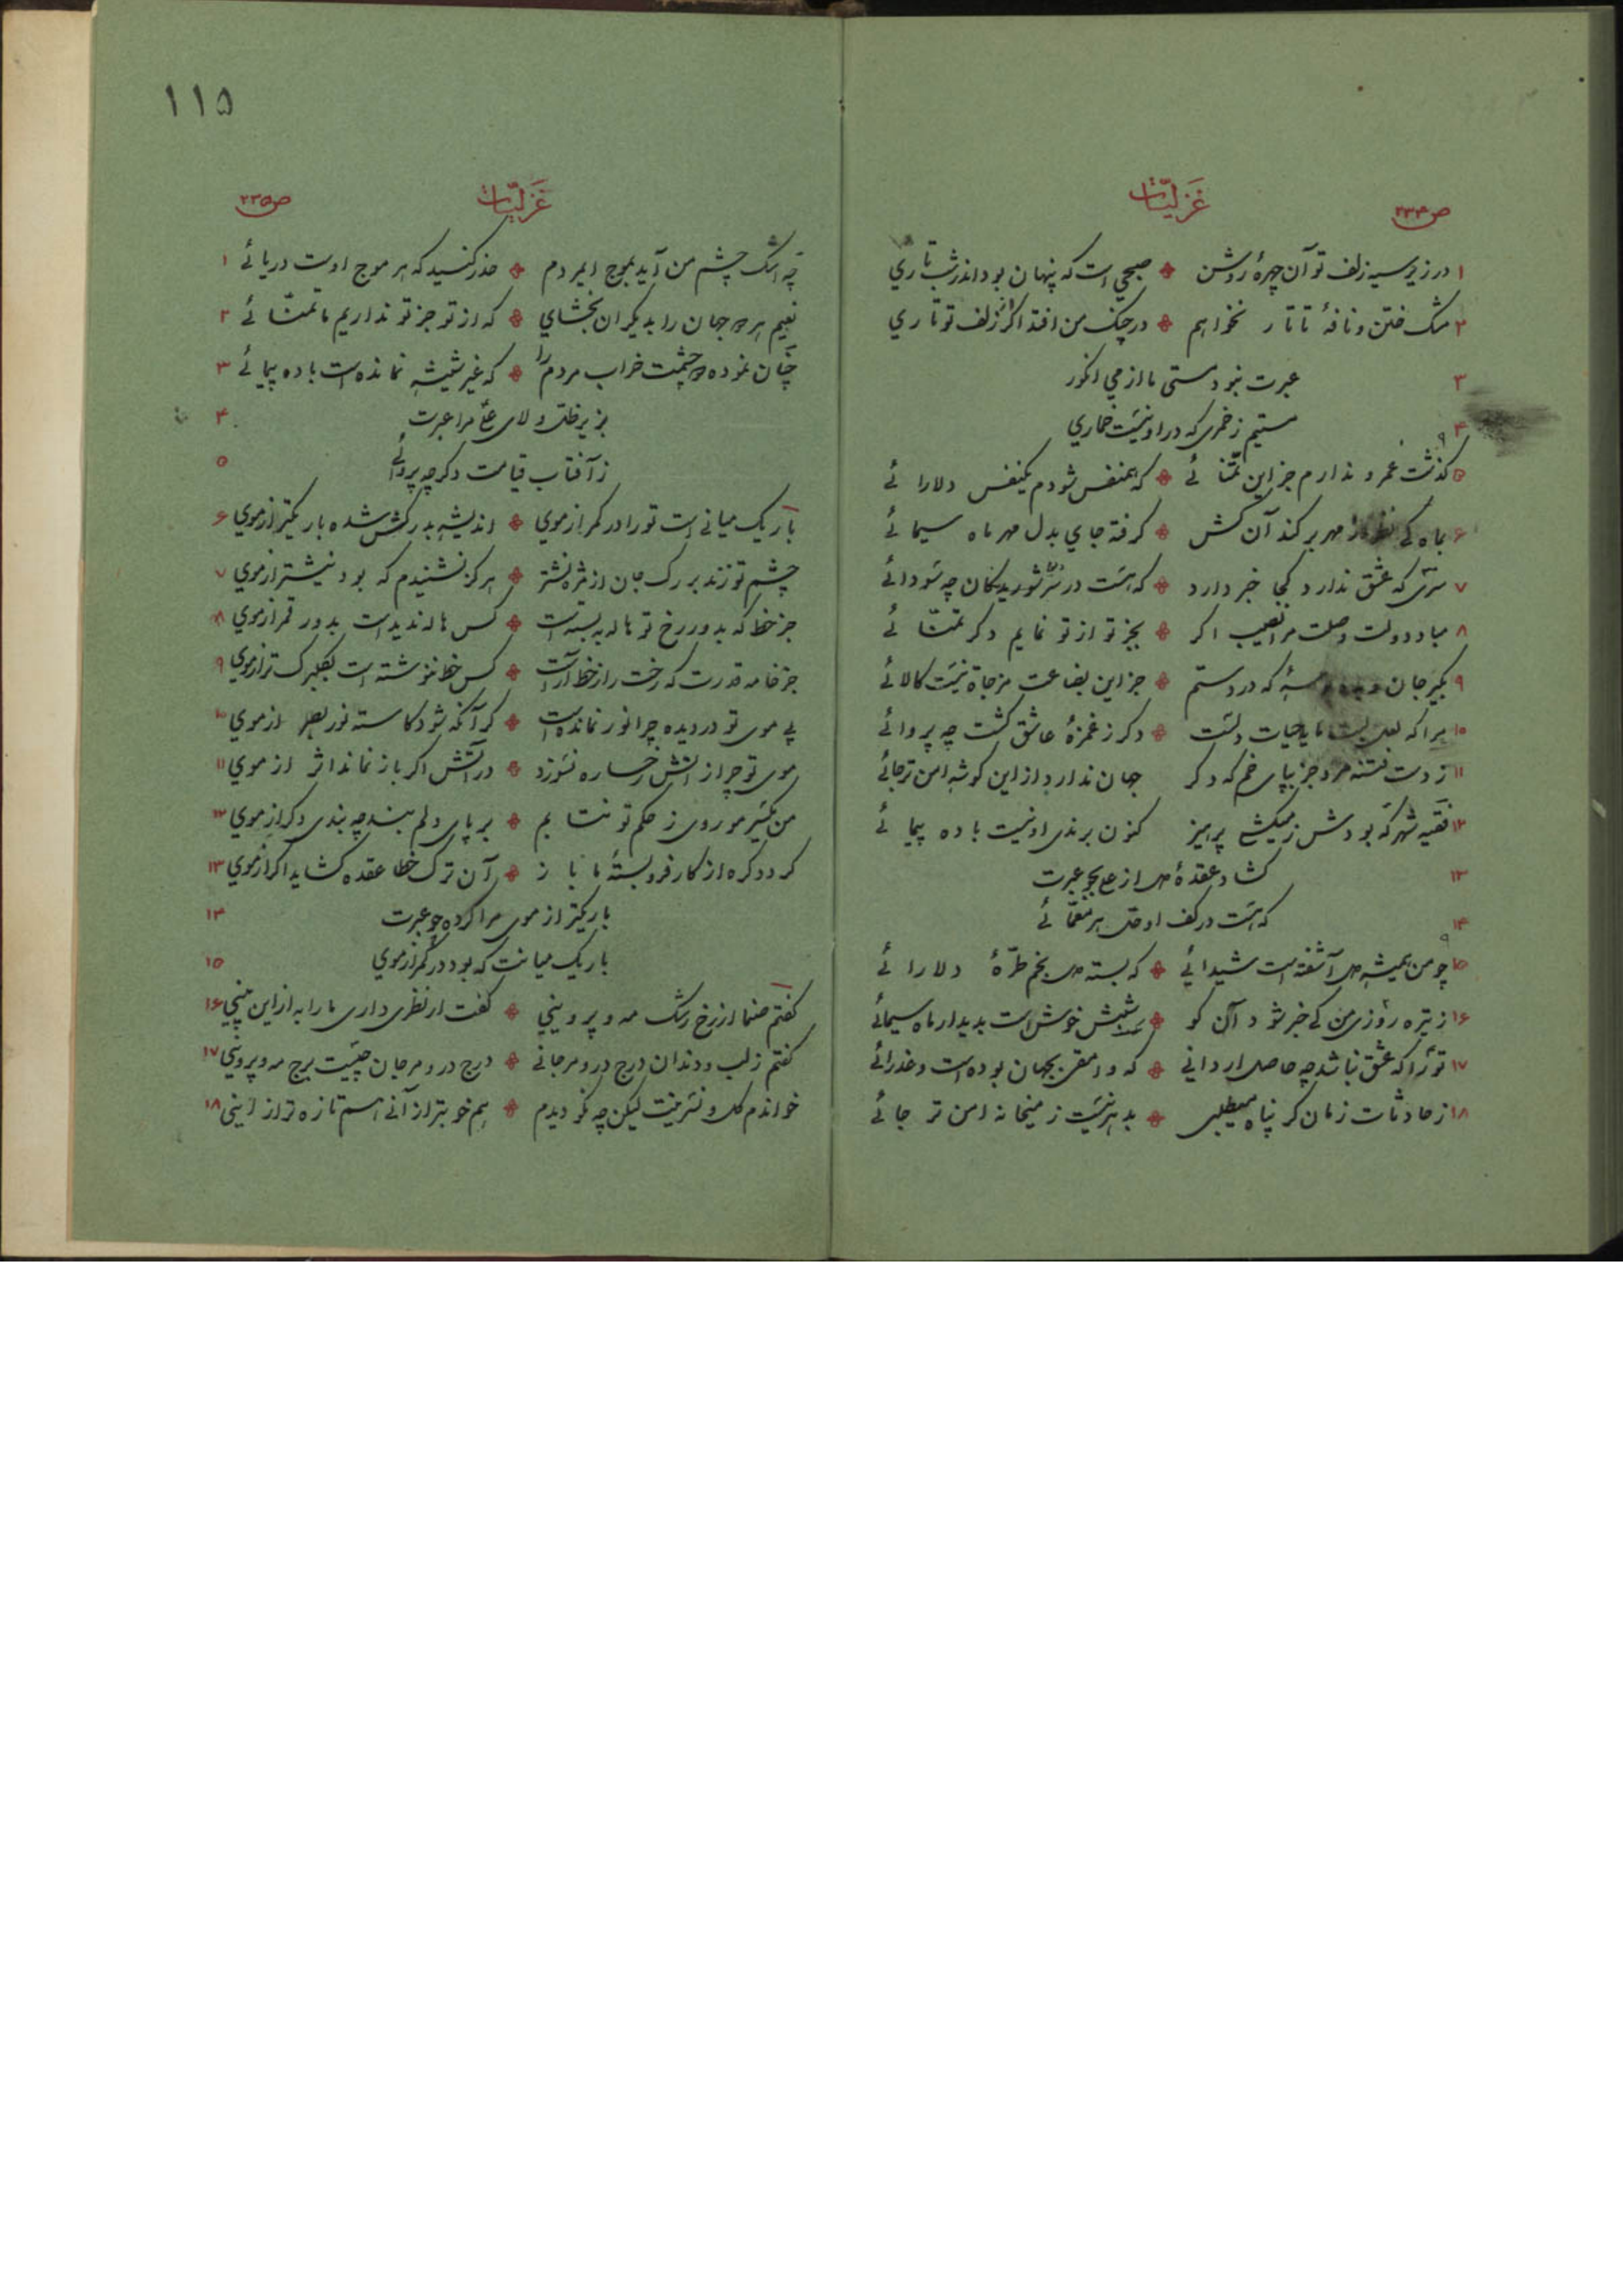 غزلیّات
ص۲۳۴
۱ در زیر سیه زلف تو آن چهرهٔ روشن صبحی است که پنهان بود اندر شب تاری
۲ مشک ختن و نافهٔ تاتار نخواهم در چنک من افتد اکر از زلف تو تاری
۳ عبرت نبود مستی ما از می انکور
۴ مستیم ز خمری که در او نیست خماری
۵ کذشت عمر و ندارم جز این تمنّائی که همنفس شودم یکنفس دلارائی
۶ بماه کی مهر برکند آن کش کرفته جای بدل مهر ماه سیمائی
۷ سری که عشق ندارد کجا خبر دارد که هست در سر شوریدکان چه سودائی
۸ مباد دولت وصلت مرا نصیب اکر بجز تو از تو نمایم دکر تمنّائی
۹ بکیر جان که در دستم جز این بضاعت مزجاة نیست کالائی
۱۰ مرا که لعل لبت مایه حیات دلست دکر ز غمزهٔ عاشق کشت چه پروائی
۱۱ ز دست فتنه مرو جز بپای خم که دکر جهان ندارد از این کوشه امن تر جائی
۱۲ فقیه شهر که بودش ز میکشی پرهیز کنون برندی او نیست باده پیمائی
۱۳ کشاد عقدهٔ دل از علی بجو عبرت
۱۴ که هست در کف او حل هر معمّائی
۱۵ چو من همیشه دل آشفته است شیدائی که بسته دل بخم طرّهٔ دلارائی
۱۶ ز تیره روزی من کی خبر شود آن کو شبش خوش است بدیدار ماه سیمائی
۱۷ تو را که عشق نباشد چه حاصل ار دانی که وامقی بجهان بوده است و عذرائی
۱۸ ز حادثات زمان کر پناه میطلبی بدهر نیست ز میخانه امن تر جائی
۱۱۵
غزلیّات
ص۲۳۵
چه اشک چشم من آید بموج ایمردم حذر کنسید که هر موج اوست دریائی ۱
نعیم هر دو جهان را بدیکران بخشای که از تو جز تو نداریم ما تمنّائی ۲
چنان نموده دو چشمت خراب مردم را که غیر شیشه نمانده است باده پیمائی ۳
بزیر ظلّ ولای علی مرا عبرت ۴
ز آفتاب قیامت دکر چه پروائی ۵
باریک میانی است تو را در کمر از موی اندیشه بدرکش شده باریکتر از موی ۶
چشم تو زند بر رک جان از مژه نشتر هرکز نشنیدم که بود نیشتر از موی ۷
جز خط که بدور رخ تو هاله به بسته است کس هاله ندیده است بدور قمر از موی ۸
جز خامه قدرت که رخت را ز خط آراست کس خط ننوشته است بکلبرک تر از موی ۹
بی موی تو در دیده چرا نور نمانده است کر آنکه شود کاسته نور بصر از موی ۱۰
موی تو چرا ز آتش رخساره نسوزد در آتش اکر باز نماند اثر از موی ۱۱
من یکسر مو روی ز حکم تو نتابم بر پای دلم بند چه بندی دکر از موی ۱۲
کردد کره از کار فرو بستهٔ ما باز آن ترک خطا عقده کشاید اکر از موی ۱۳
باریکتر از موی مرا کرده چو عبرت ۱۴
باریک میانت که بود در کمر از موی ۱۵
کفتم صنما از رخ رشک مه و پروینی کفت ار نظری داری ما را به از این بینی ۱۶
کفتم ز لب و دندان درج در و مرجانی درج در و مرجان چیست برج مه و پروینی ۱۷
خواندم کل و نسرینت لیکن چه نکو دیدم هم خوبتر از آنی هم تازه تر از اینی ۱۸